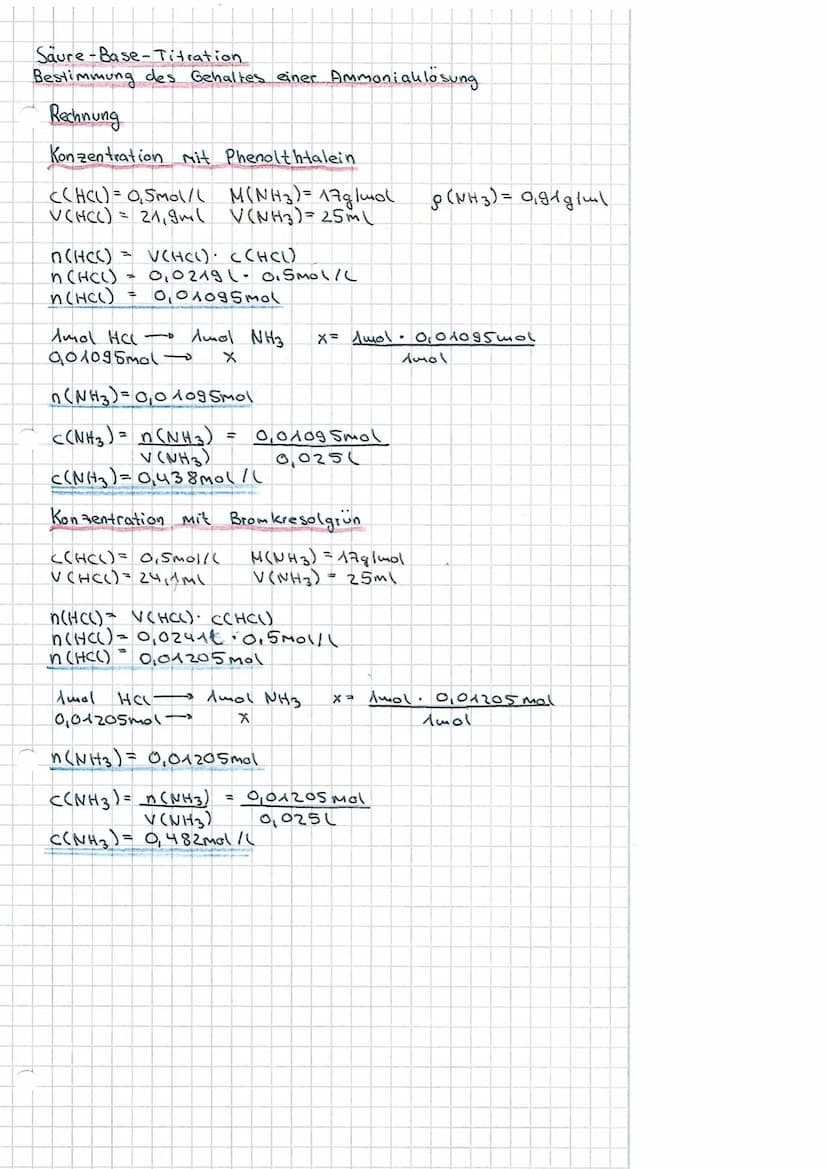 Säure-Base-Titration
Bestimmung des Gehaltes einer Ammoniaklösung
Rechnung
Konzentration mit Phenolthtalein
c(HCl)= 0,5mol/l M(NH3)= 17g/mol ρ(NH3)= 0,91g/ml
V(HCl)= 21,9ml V(NH3)= 25ml
n(HCl) = V(HCl)· c(HCl)
n(HCl) = 0,0219l · 0,5mol/l
n(HCl) = 0,01095mol
1mol HCl → 1mol NH3 x= 1mol · 0,01095mol
0,01095mol → x 1mol
n(NH3)=0,01095mol
c(NH3)= n(NH3) = 0,01095mol
V(NH3) 0,025l
c(NH3)= 0,438mol/l
Konzentration mit Bromkresolgrün
c(HCl)= 0,5mol/l M(NH3)= 17g/mol
V(HCl)= 24,1ml V(NH3)= 25ml
n(HCl)= V(HCl)· c(HCl)
n(HCl)= 0,0241l · 0,5mol/l
n(HCl)= 0,01205mol
1mol HCl → 1mol NH3 x= 1mol · 0,01205mol
0,01205mol → x 1mol
n(NH3)= 0,01205mol
c(NH3)= n(NH3) = 0,01205mol
V(NH3) 0,025l
c(NH3)= 0,482mol/l